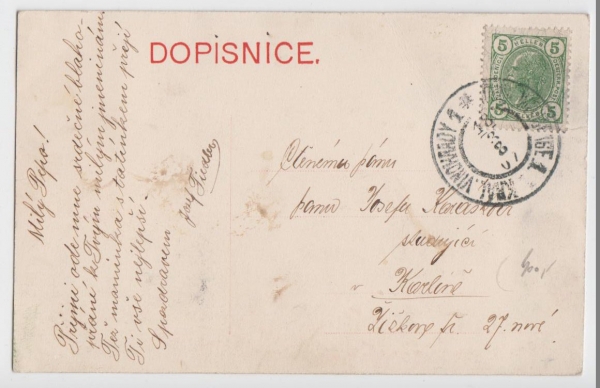 DOPISNICE.
Milý Pepo!
Přijmi ode mne srdečné blaho-
přání k Tvým milým jmeninám.
Též maminka s tatínkem přejí
Ti vše nejlepší.
S pozdravem
Josef Fiedler
5 HELLER 5
5 5
KRÁL. VINOHRADY 1
Ctěnému pánu
panu Josefu
studující
v Karlíně
Žižkova tř. 27. nové